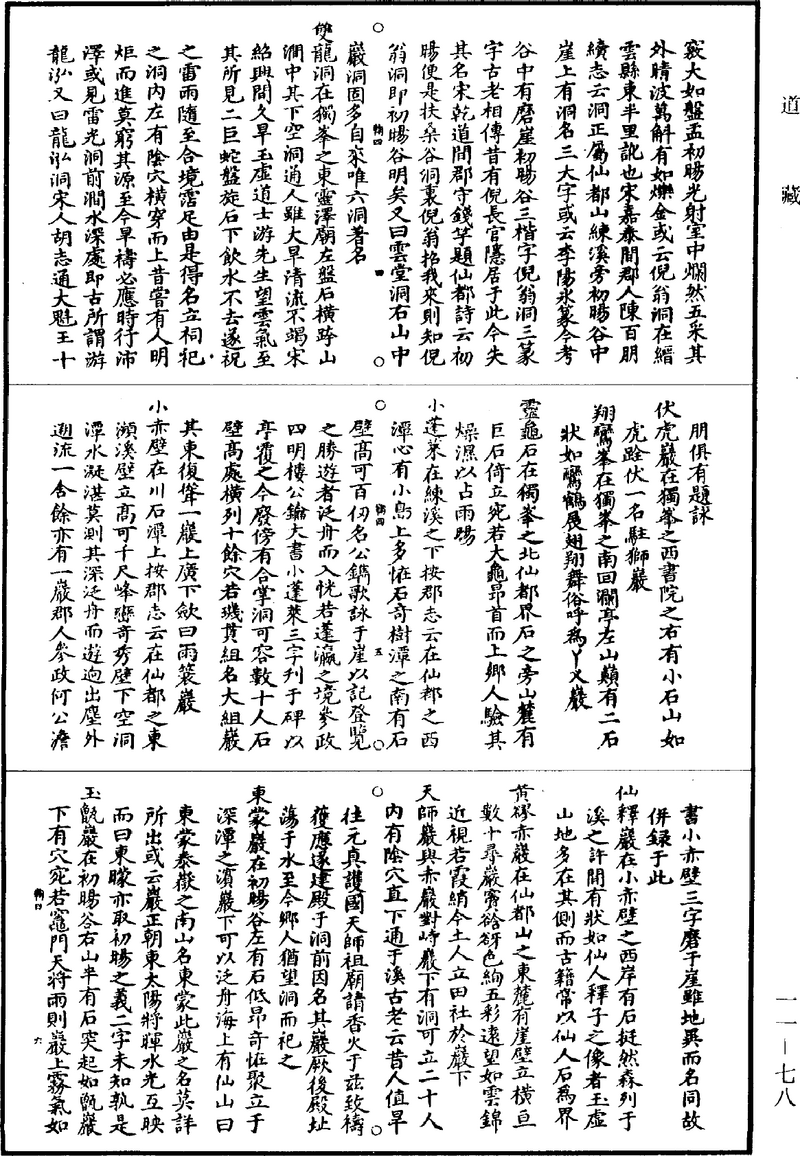 道藏
一一—七八
竅大如盤盂初暘光射室中爛然五采其
外晴波萬斛有如爍金或云倪翁洞在縉
雲縣東半里訛也宋嘉泰間郡人陳百朋
續志云洞正屬仙都山練溪旁初暘谷中
崖上有洞名三大字或云李陽氷篆今考
谷中有磨崖初暘谷三楷字倪翁洞三篆
字古老相傳昔有倪長官隱居于此今失
其名宋乾道間郡守錢竽題仙都詩云初
暘便是扶桑谷洞裏倪翁招我來則知倪
翁洞即初暘谷明矣又曰雲堂洞右山中
巖洞固多自來唯六洞著名
雙龍洞在獨峯之東靈澤廟左盤石橫跨山
澗中其下空洞通人雖大旱清流不竭宋
紹興間久旱玉虛道士游先生望雲氣至
其所見二巨蛇盤旋石下飲水不去遂祝
之雷雨隨至合境霑足由是得名立祠祀
之洞內左有陰穴橫穿而上昔嘗有人明
炬而進莫窮其源至今旱禱必應時行沛
澤或見雷光洞前澗水深處即古所謂游
龍泓又曰龍泓洞宋人胡志通大魁王十
朋俱有題詠
伏虎巖在獨峯之西書院之右有小石山如
虎跧伏一名駐獅巖
翔鸞峯在獨峯之南回瀾亭左山巔有二石
狀如鸞鶴展翅翔舞俗呼爲丫乂巖
靈龜石在獨峯之北仙都界石之旁山麓有
巨石倚立宛若大龜昂首而上鄉人驗其
燥濕以占雨暘
小蓬萊在練溪之下按郡志云在仙都之西
潭心有小島上多恠石奇樹潭之南有石
壁高可百仞名公鐫歌詠于崖以記登覽
之勝遊者泛舟而入恍若蓬瀛之境參政
四明樓公鑰大書小蓬萊三字刋于碑以
亭覆之今廢傍有合掌洞可容數十人石
壁高處橫列十餘穴若璣貫組名大組巖
其東復聳一巖上廣下斂曰雨蓑巖
小赤壁在川石潭上按郡志云在仙都之東
瀕溪壁立高可千尺峰巒奇秀壁下空洞
潭水凝湛莫測其深泛舟而遊迥出塵外
遡流一舍餘亦有一巖郡人參政何公澹
書小赤壁三字磨于崖雖地異而名同故
併録于此
仙釋巖在小赤壁之西岸有石挺然森列于
溪之許間有狀如仙人釋子之像者玉虛
山地多在其側而古籍常以仙人石爲界
黃䃂赤巖在仙都山之東麓有崖壁立橫亘
數十尋巖竇谽谺色絢五彩遠望如雲錦
近視若霞綃今土人立田社於巖下
天師巖與赤巖對峙巖下有洞可立二十人
內有陰穴直下通于溪古老云昔人值旱
往元真護國天師祖廟請香火于茲致禱
獲應遂建殿于洞前因名其巖厥後殿址
蕩于水至今鄉人猶望洞而祀之
東蒙巖在初暘谷左有石低昂奇恠聚立于
深潭之濵巖下可以泛舟海上有仙山曰
東蒙泰嶽之南山名東蒙此巖之名莫詳
所出或云巖正朝東太陽將暉水光互映
而曰東矇亦取初暘之義二字未知孰是
玉甑巖在初暘谷右山半有石突起如甑巖
下有穴宛若竈門天將雨則巖上霧氣如
四
五
六